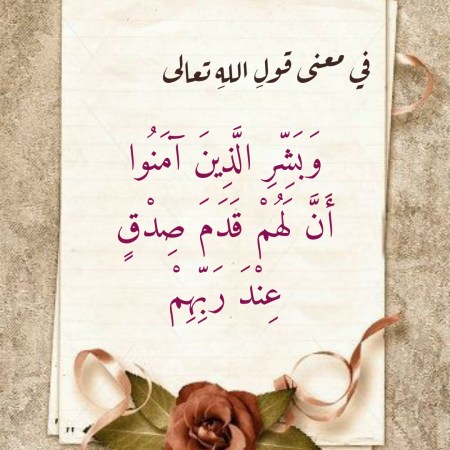 في معنى قولِ اللهِ تعالى
وَبَشِّرِ الَّذِينَ آمَنُوا
أَنَّ لَهُمْ قَدَمَ صِدْقٍ
عِنْدَ رَبِّهِمْ